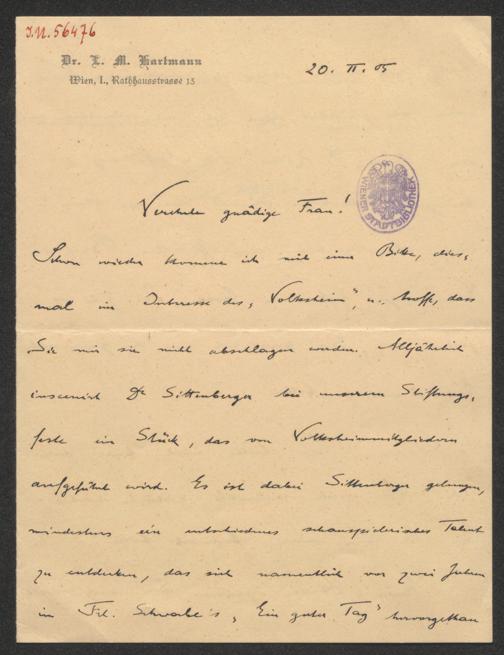 I.N. 56476
Dr. L. M. Hartmann
Wien, I., Rathhausstrasse 15
20. II. 05
WIENER STADTBIBLIOTHEK
Verehrte gnädige Frau!
Schon wieder komme ich mit einer Bitte, dies-
mal im Interesse des „Volksheim“, u. hoffe, dass
Sie mir sie nicht abschlagen werden. Alljährlich
inscenirt Dr Sittenberger bei unserem Stiftungs-
feste ein Stück, das von Volksheimmitgliedern
aufgeführt wird. Es ist dabei Sittenberger gelungen,
mindestens ein entschiedenes schauspielerisches Talent
zu entdecken, das sich namentlich vor zwei Jahren
in Frl. Schwabe's „Ein guter Tag“ hervorgethan